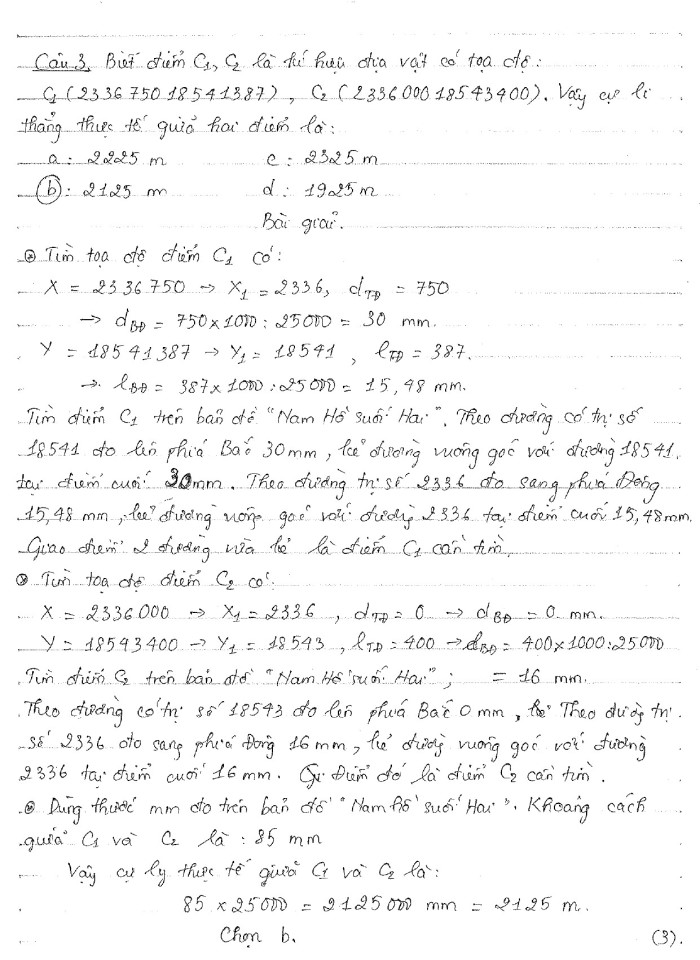 Câu 3, Biết điểm C1, C2 là kí hiệu địa vật có tọa độ:
C1 (2336750 18541387), C2 (2336000 18543400). Vậy cự li
thẳng thực tế giữa hai điểm là:
a: 2225 m c: 2325 m
b: 2125 m d: 1925 m
Bài giải.
Tìm tọa độ điểm C1 có:
X = 2336750 → X1 = 2336, dTĐ = 750
→ dBĐ = 750 x 1000 : 25000 = 30 mm.
Y = 18541387 → Y1 = 18541, lTĐ = 387.
→ lBĐ = 387 x 1000 : 25000 = 15,48 mm.
Tìm điểm C1 trên bản đồ "Nam Hồ suối Hai". Theo đường có trị số
18541 đo lên phía Bắc 30mm, kẻ đường vuông góc với đường 18541.
tại điểm cuối 30mm. Theo đường trị số 2336 đo sang phía Đông
15,48 mm, kẻ đường vuông góc với đường 2336 tại điểm cuối 15,48mm.
Giao điểm 2 đường vừa kẻ là điểm C1 cần tìm.
Tìm tọa độ điểm C2 có:
X = 2336000 → X1 = 2336, dTĐ = 0 → dBĐ = 0 mm.
Y = 18543400 → Y1 = 18543, lTĐ = 400 → dBĐ = 400 x 1000 : 25000
Tìm điểm C2 trên bản đồ "Nam Hồ suối Hai"; = 16 mm.
Theo đường có trị số 18543 đo lên phía Bắc 0 mm, kẻ Theo đường trị
số 2336 đo sang phía Đông 16 mm, kẻ đường vuông góc với đường
2336 tại điểm cuối 16 mm. Điểm đó là điểm C2 cần tìm.
Dùng thước mm đo trên bản đồ "Nam hồ suối Hai". Khoảng cách
giữa C1 và C2 là: 85 mm
Vậy cự ly thực tế giữa C1 và C2 là:
85 x 25000 = 2125000 mm = 2125 m.
Chọn b. (3).